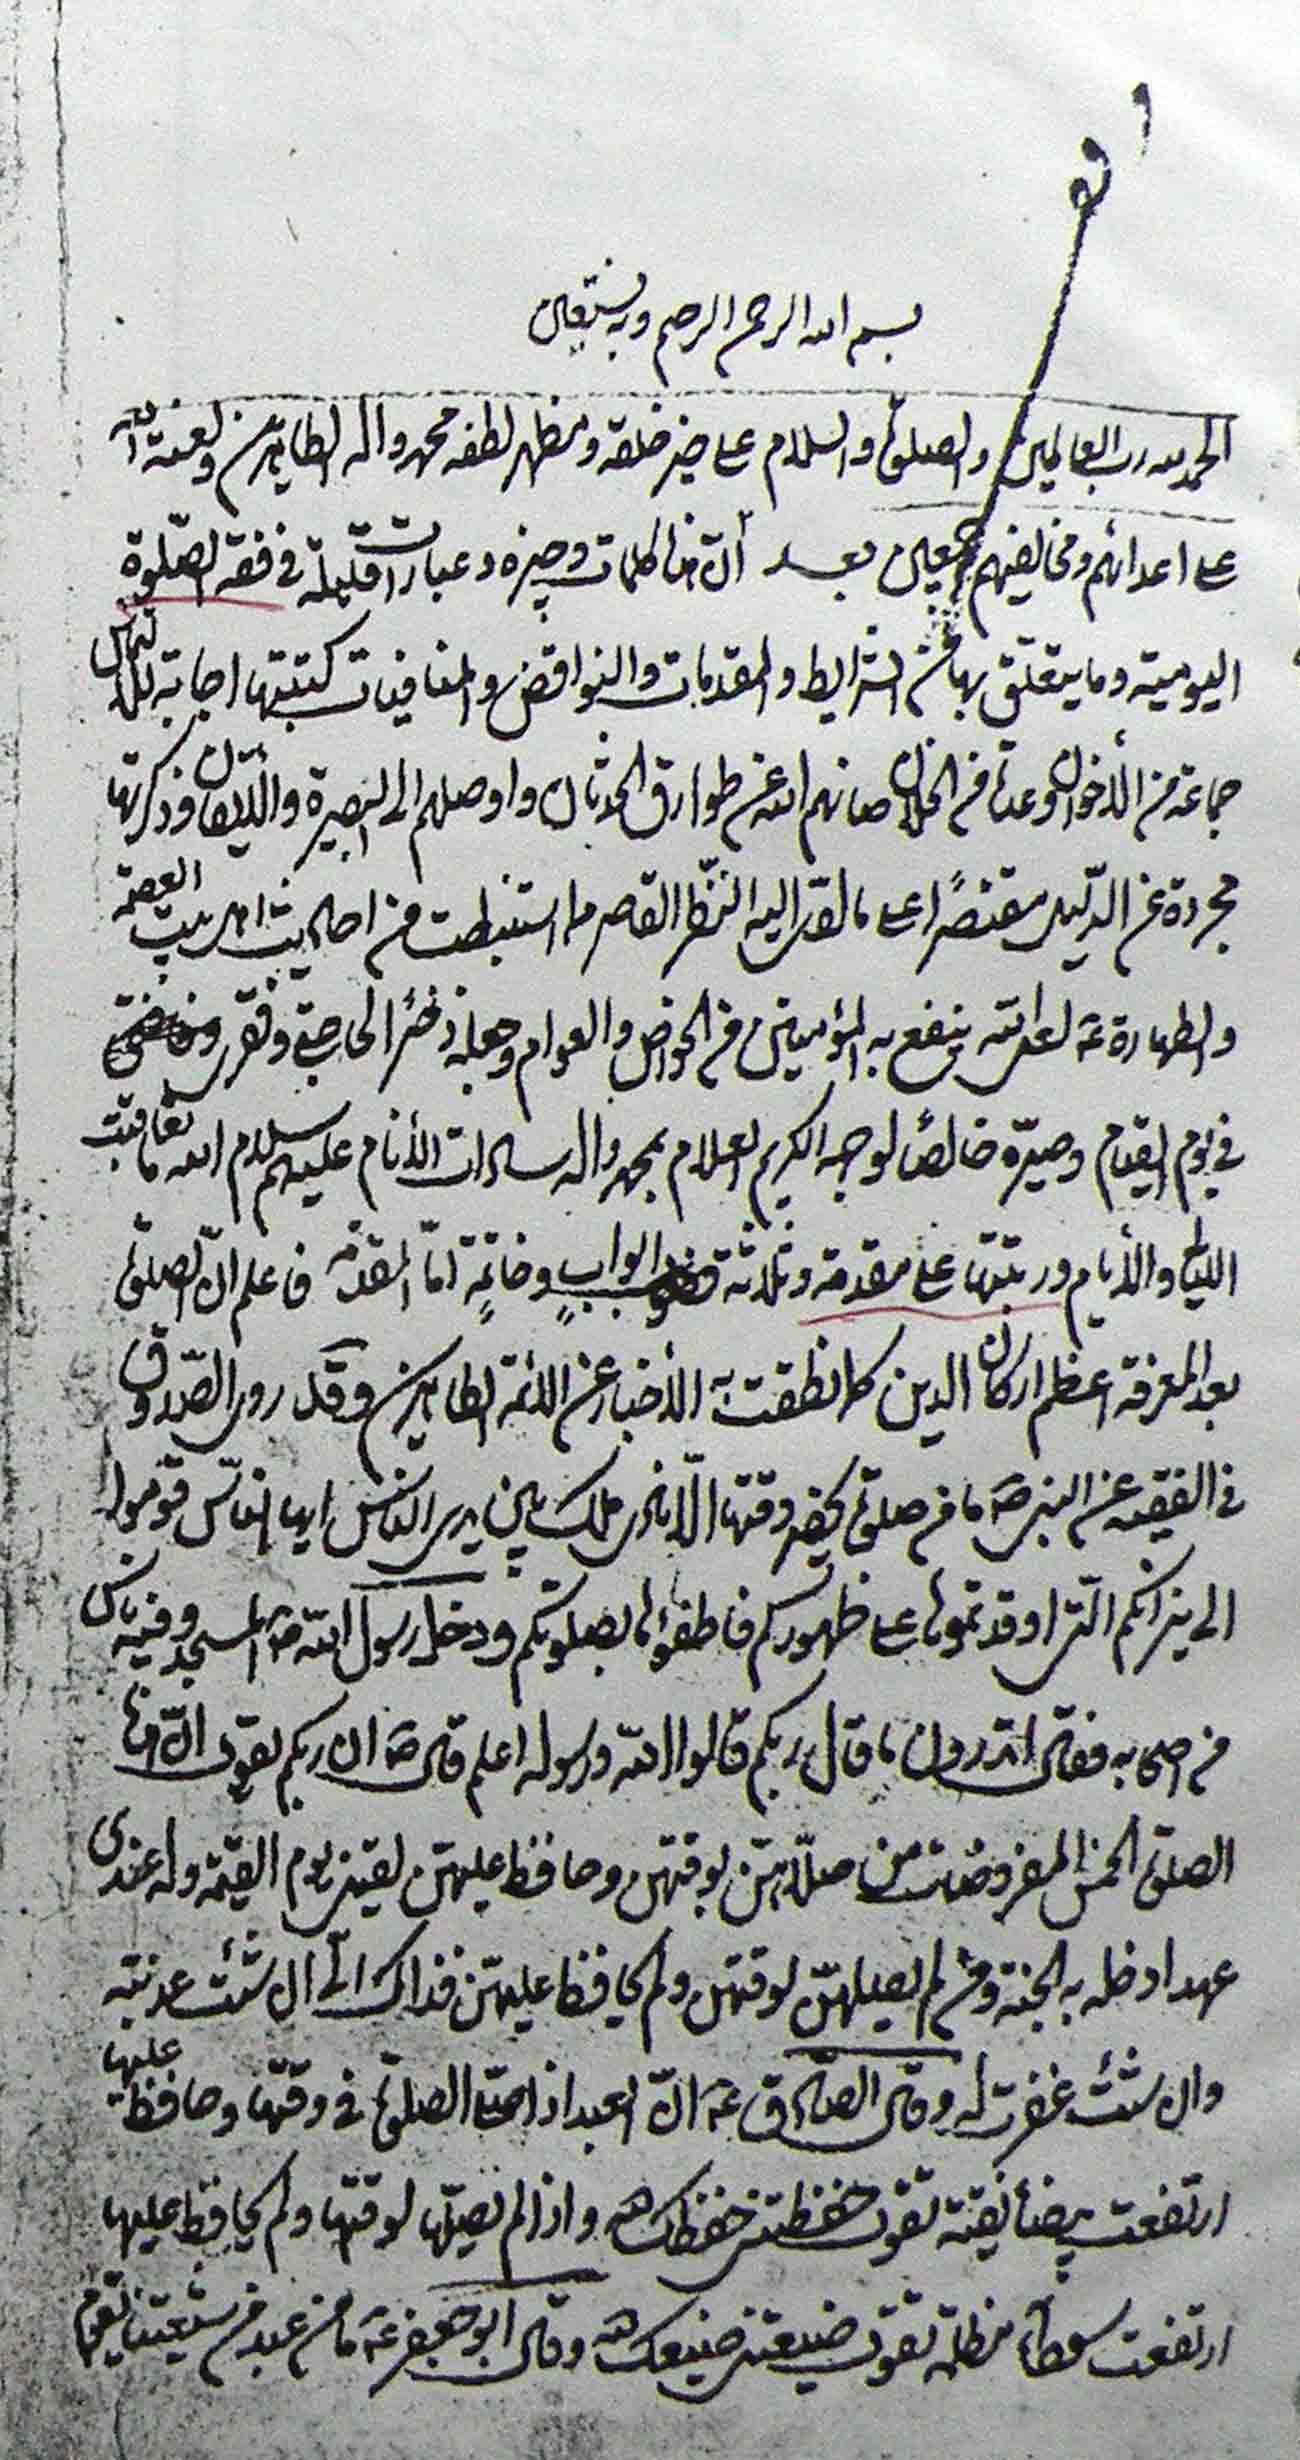 وقف
بسم الله الرحمن الرحیم وبه نستعین
الحمد لله رب العالمین والصلوة والسلام علی خیر خلقه ومظهر لطفه محمد واله الطاهرین ولعنة الله
علی اعدائهم ومخالفیهم اجمعین بعد ان هذا کلمات وجیزه وعبارات قلیلة فی فقه الصّلوة
الیومیة وما یتعلّق بها من الشرایط والمقدمات والنواقض والمنافیات کتبتها اجابة لالتماس
جماعة من الأخوان وعدة من الخلان صانهم الله عن طوارق الحدثان واوصلهم الی البصیرة والأیقان وذکرتها
مجردة عن الدّلیل مقتصراً علی ما القی الیه النّظر القاصر مما استنبطت من احادیث اهل بیت العصمة
والطهارة ع لعل الله ینفع به المؤمنین من الخواص والعوام وجعله ذخرًا لحاجتی وفقری
فی یوم القیام وصیرّه خالصًا لوجه الکریم العلام بمحمد واله سادات الأنام علیهم سلام الله ما تعاقبت
اللیالی والأیام ورتبتها علی مقدمة وثلاثة ابواب وخاتمةٍ امّا المقدمة فاعلم انّ الصلوة
بعد المعرفة اعظم ارکان الدین کما نطقت به الأخبار عن الائمة الطاهرین وقد روی الصّدوق
فی الفقیه عن النبی ص ما من صلوة یحضر وقتها الّا نادی ملک بین یدی الناس ایها النّاس قوموا
الی نیرانکم الّتی اوقدتموها علی ظهورکم فاطفؤها بصلوتکم ودخل رسول اللّه ص المسجد وفیه ناس
من اصحابه فقال اتدرون ما قال ربکم قالوا اللّه ورسوله اعلم قال ص ان ربکم یقول انّ هذه
الصلوة الخمس المفروضات من صلّاهنّ لوقتهن وحافظ علیهنّ لقینی یوم القیمة وله عندی
عهد ادخله به الجنة ومن لم یصلهنّ لوقتهن ولم یحافظ علیهنّ فذاک الیّ ان شئت عذبته
وان شئت غفرت له وقال الصّادق ع انّ العبد اذا صلی الصلوة فی وقتها وحافظ علیها
ارتفعت بیضاء نقیة تقول حفظتنی حفظک الله واذا لم یصلّها لوقتها ولم یحافظ علیها
ارتفعت سوداء مظلمة تقول ضیعتنی ضیعک الله وقال ابو جعفر ع ما من عبد من شیعتنا یقوم